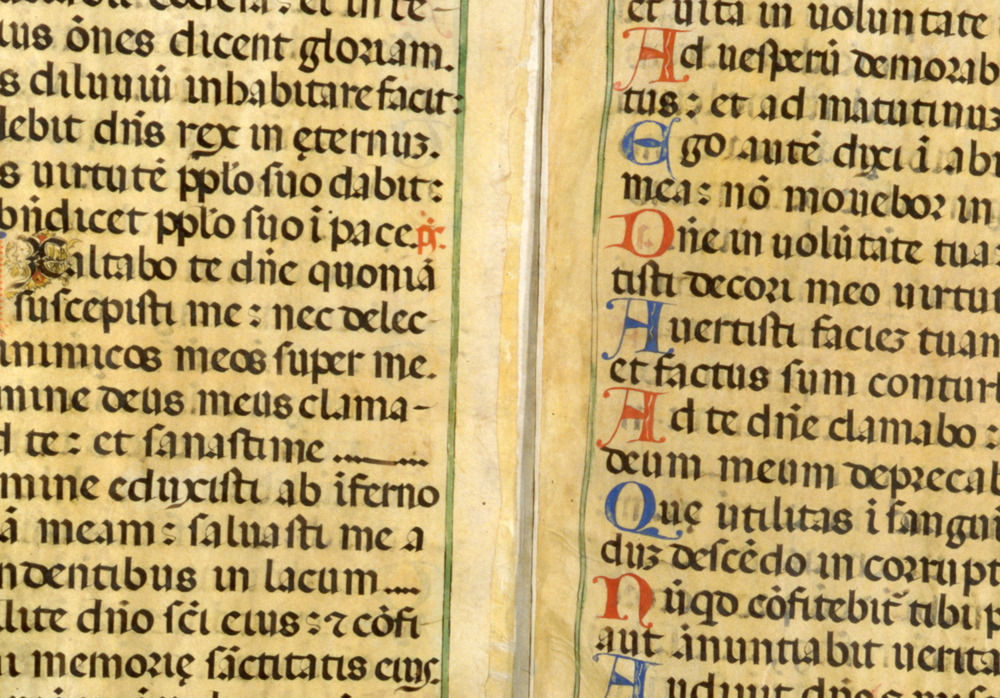 et in te-
ius ōnes dicent gloriam.
s diluuiū inhabitare facit:
debit dn̄s rex in ęternuꝫ.
s uirtutē pplo suo dabit:
bn̄dicet pplo suo ī pace. ps.
Exaltabo te dn̄e quoniā
suscepisti me: nec delec-
inimicos meos super me.
mine deus meus clama-
d te: et sanasti me
mine eduxisti ab īferno
ā meam: saluasti me a
ndentibus in lacum
llite dn̄o sc̄i eius: ⁊ cōfi-
memorię sāctitatis eius.
et uita in uoluntate
Ad uesperū demorab
tus: et ad matutinuꝫ
Ego autē dixi ī abu
mea: nō mouebor in
Dn̄e in uolūtate tua
tisti decori meo uirtut
Auertisti facieꝫ tuam
et factus sum conturb
Ad te dn̄e clamabo:
deum meum deprecab
Quę utilitas ī sangui
duꝫ descēdo in corrupt
Nūqd cōfitebit tibi p
aut ānuntiabit uerita
Audiuit dn̄s